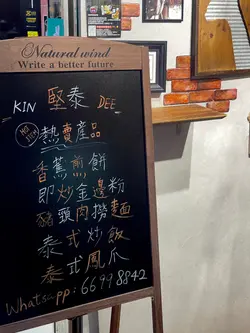 Natural wind
Write a better future
KIN 堅泰 DEE
熱賣產品
香蕉煎餅
即炒金邊粉
豬頸肉撈麵
泰式炒飯
泰式鳳爪
Whatsapp: 66998842